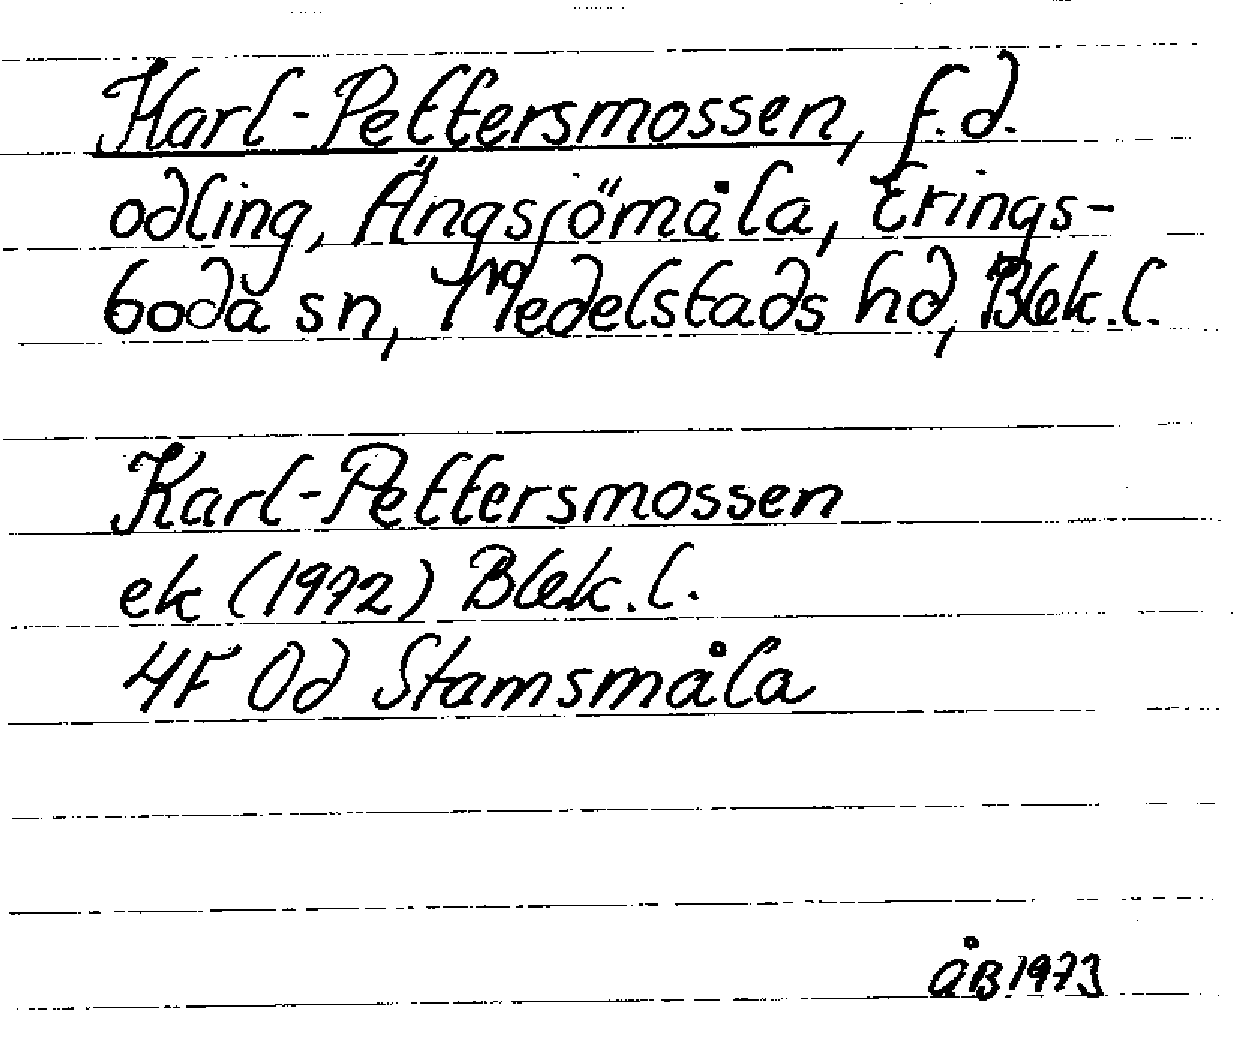 Karl-Pettersmossen, f.d.
odling, Ängsjömåla, Erings-
boda sn, Medelstads hd, Blek.l.
Karl-Pettersmossen
ek (1972) Blek.l.
4F 0d Stamsmåla
åB 1973